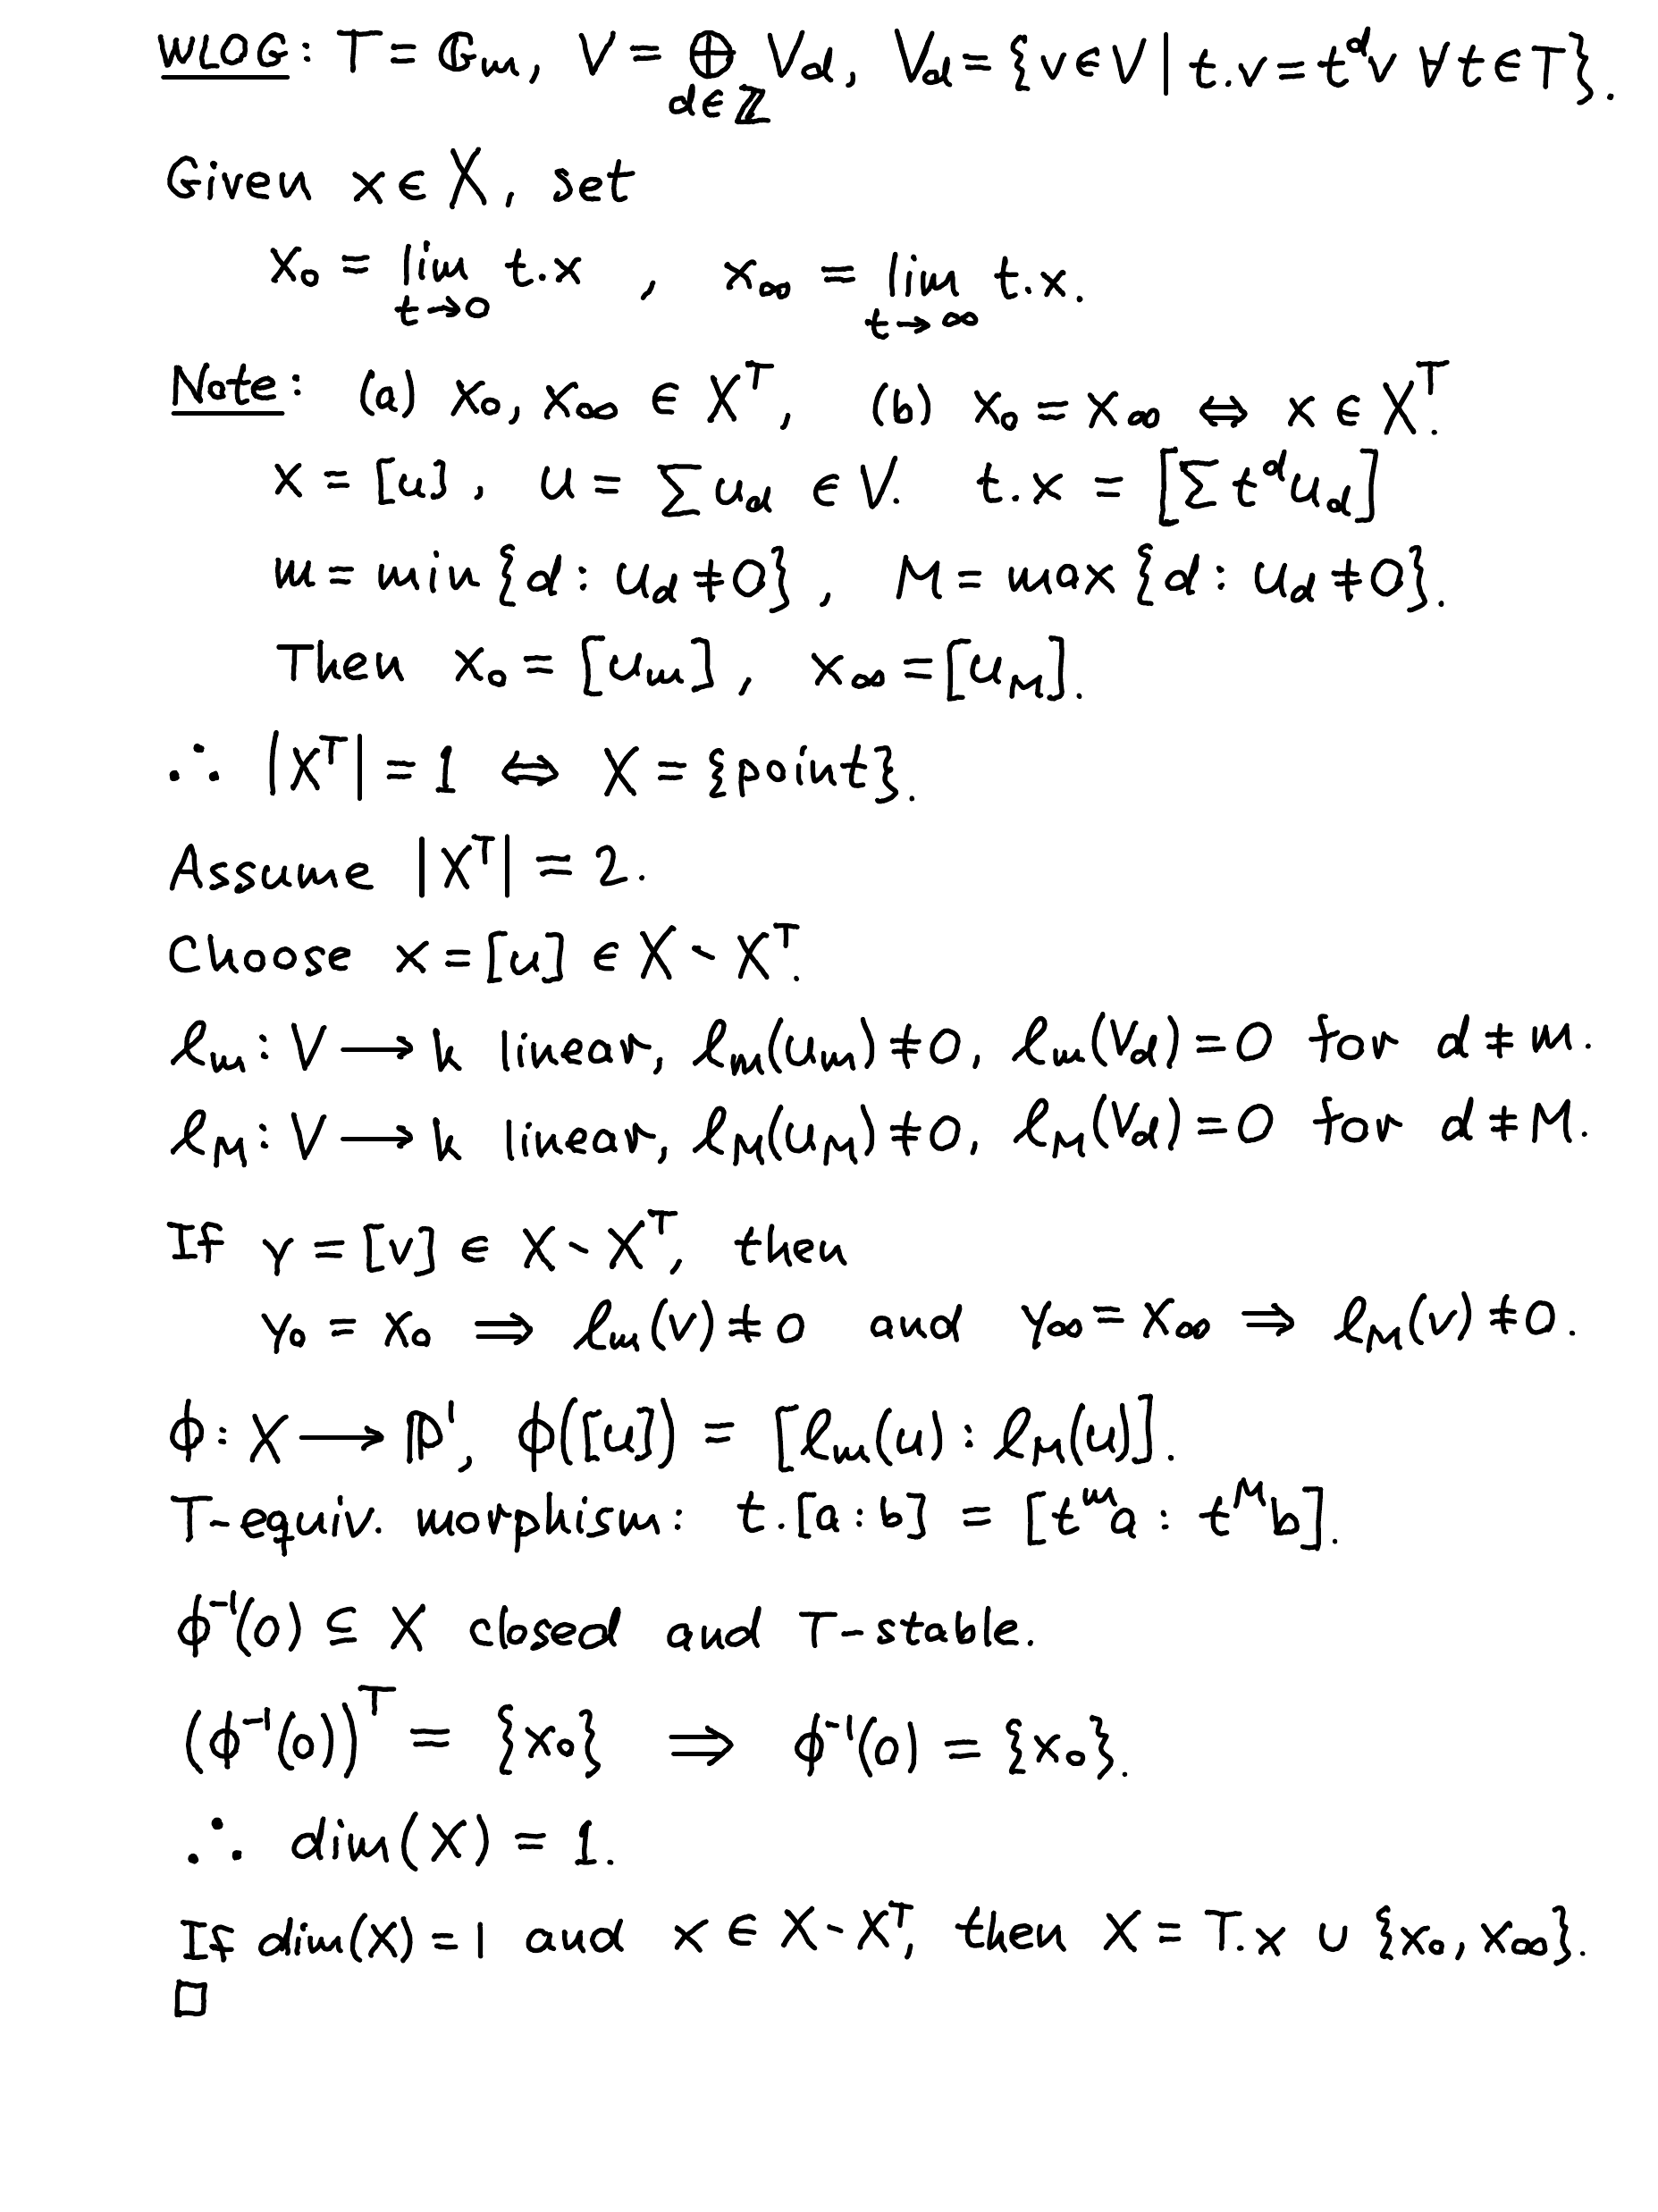 WLOG: T = 𝔾ₘ, V = ⊕_{d∈ℤ} V_d, V_d = {v ∈ V | t.v = t^d v ∀ t ∈ T}.
Given x ∈ X, set
x₀ = lim_{t→0} t.x , x_∞ = lim_{t→∞} t.x.
Note: (a) x₀, x_∞ ∈ X^T, (b) x₀ = x_∞ ⇔ x ∈ X^T.
x = [u], u = ∑ u_d ∈ V. t.x = [∑ t^d u_d]
m = min {d : u_d ≠ 0}, M = max {d : u_d ≠ 0}.
Then x₀ = [u_m], x_∞ = [u_M].
∴ |X^T| = 1 ⇔ X = {point}.
Assume |X^T| = 2.
Choose x = [u] ∈ X ∖ X^T.
ℓ_m : V ⟶ k linear, ℓ_m(u_m) ≠ 0, ℓ_m(V_d) = 0 for d ≠ m.
ℓ_M : V ⟶ k linear, ℓ_M(u_M) ≠ 0, ℓ_M(V_d) = 0 for d ≠ M.
If y = [v] ∈ X ∖ X^T, then
y₀ = x₀ ⟹ ℓ_m(v) ≠ 0 and y_∞ = x_∞ ⟹ ℓ_M(v) ≠ 0.
ϕ : X ⟶ ℙ¹, ϕ([u]) = [ℓ_m(u) : ℓ_M(u)].
T-equiv. morphism: t.[a:b] = [t^m a : t^M b].
ϕ⁻¹(0) ⊆ X closed and T-stable.
(ϕ⁻¹(0))^T = {x₀} ⟹ ϕ⁻¹(0) = {x₀}.
∴ dim(X) = 1.
If dim(X) = 1 and x ∈ X ∖ X^T, then X = T.x ∪ {x₀, x_∞}.
□